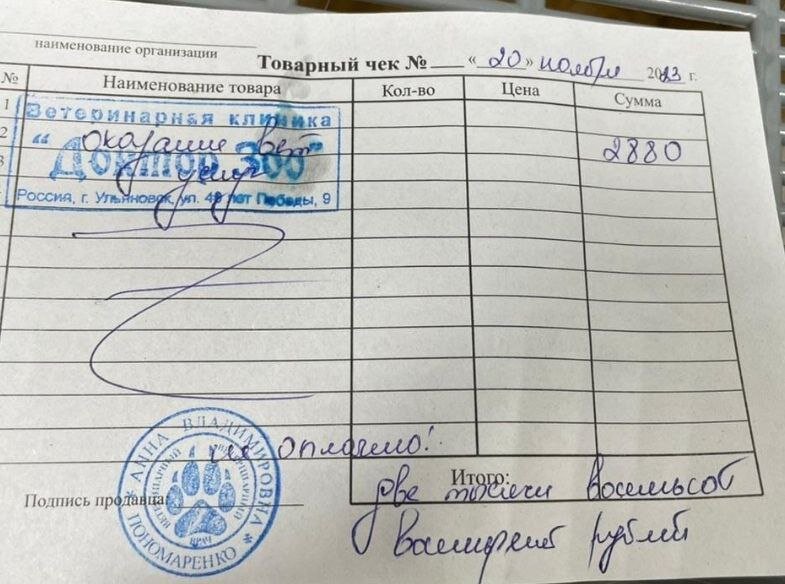 наименование организации
Товарный чек № « 20 » ноября 2023 г.
№ Наименование товара Кол-во Цена Сумма
1
Ветеринарная клиника
2 оказание вет 2880
"Доктор Зоо"
3 услуг
Россия, г. Ульяновск, ул. 40 лет Победы, 9
оплачено!
Итого:
две тысячи восемьсот
восемьдесят рублей
Подпись продавца
АННА ВЛАДИМИРОВНА
ПОНОМАРЕНКО
ВЕТЕРИНАРНЫЙ
ВРАЧ